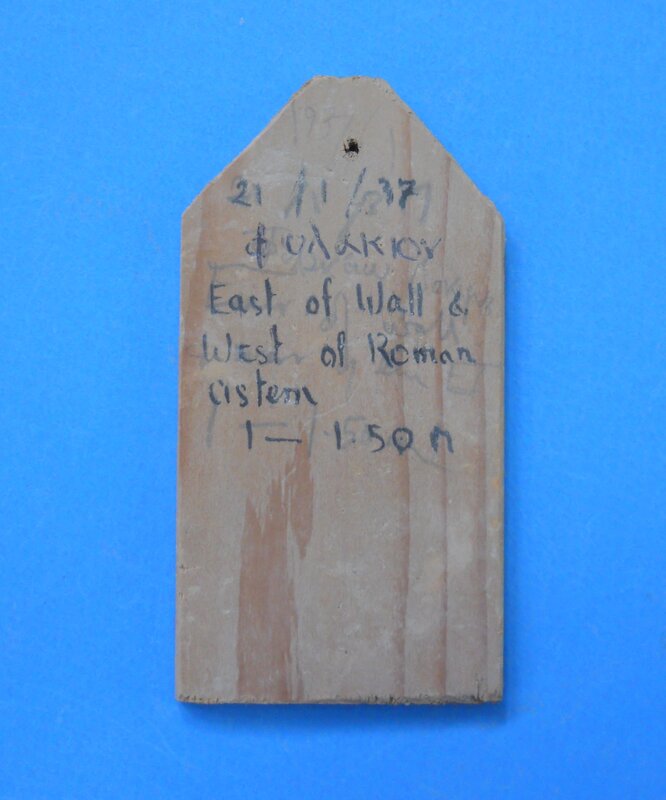 21/1/37
φυλάκιον
East of Wall &
West of Roman
cistern
1 — 1.50 m